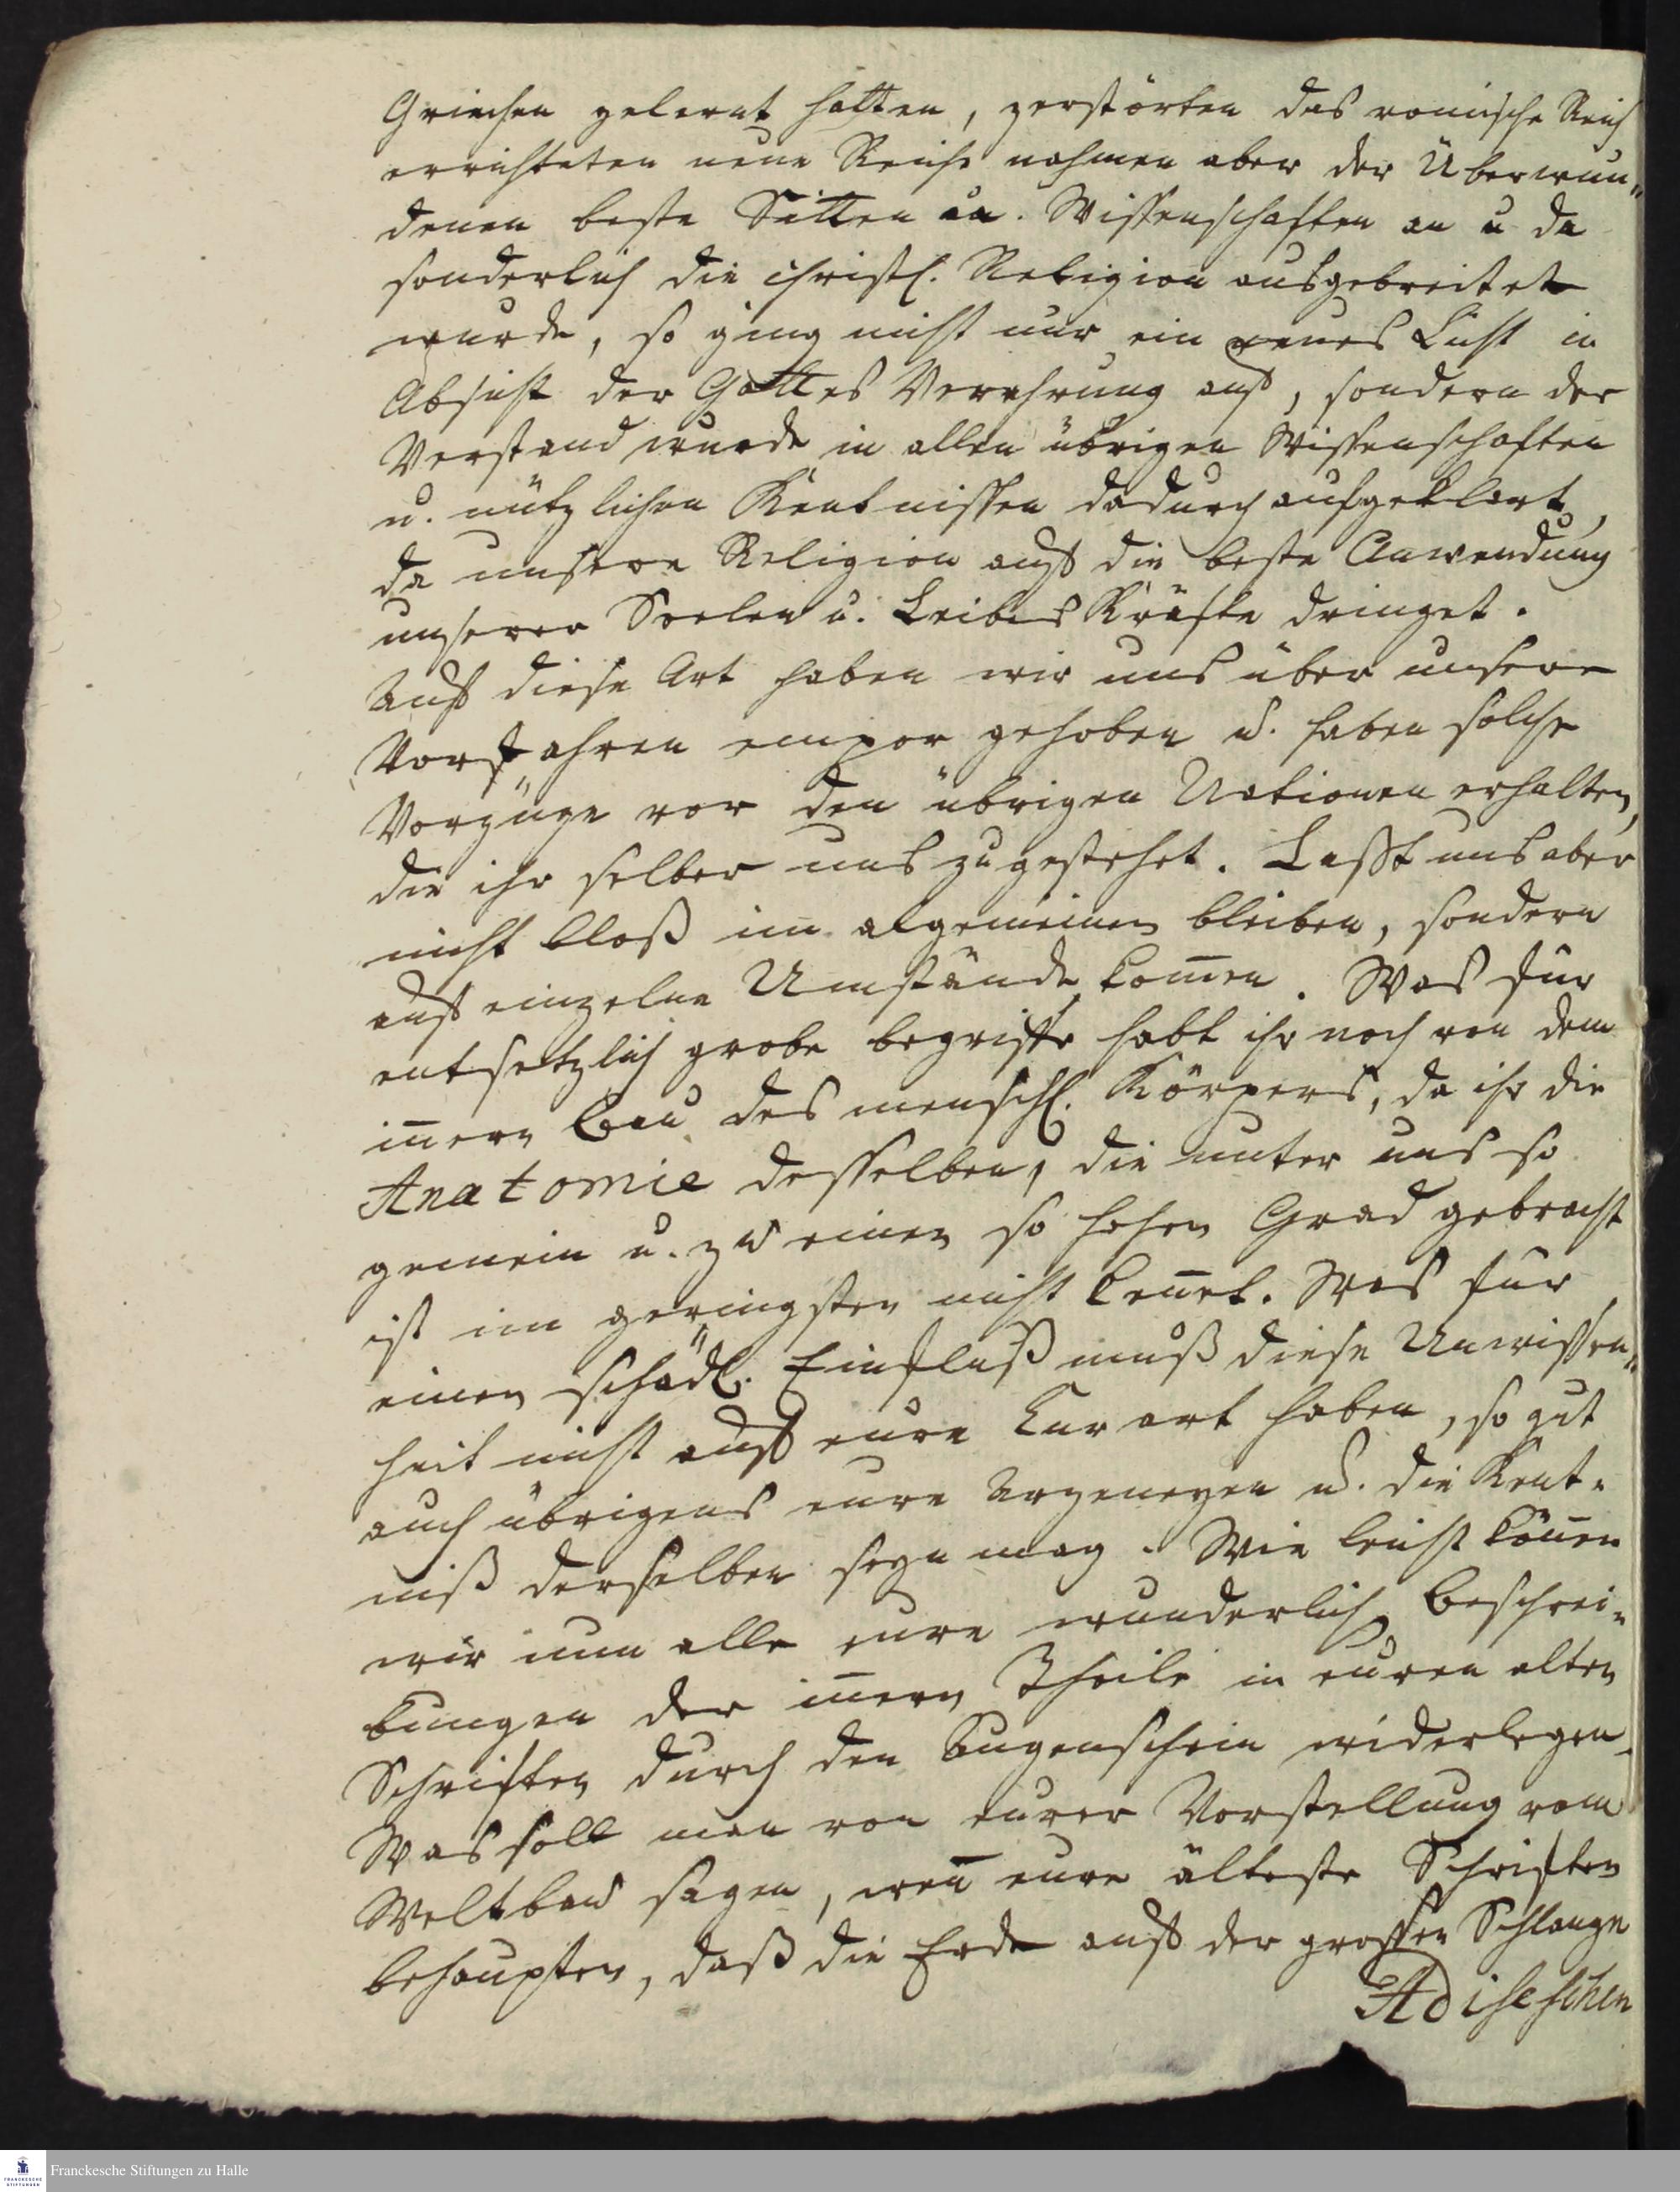 Griechen gelernt hatten, zerstörten das römische Reich
errichteten neue Reiche nahmen aber der Überwun„
denen beste Sitten u. Wissenschaften an u da
sonderlich die christl. Religion ausgebreitet
wurde, so ging nicht nur ein neues Licht in
Absicht der Gottes Verehrung auf, sondern der
Verstand wurde in allen übrigen Wissenschaften
u. nützlichen Kentnissen dadurch aufgeklart,
da unsere Religion auf die beste Anwendung
unserer Seelen u. Leibes Kräfte dringet.
Auf diese Art haben wir uns über unsere
Vorfahren empor gehoben u. haben solche
Vorzüge vor den übrigen Nationen erhalten,
die ihr selber uns zugestehet. Laßt uns aber
nicht bloß im algemeinen bleiben, sondern
auf einzelne Umstände kom̅en. Was für
entsetzlich grobe begriffe habt ihr noch von dem
in̅ern Bau des menschl. Körpers, da ihr die
Anatomie desselben, die unter uns so
gemein u. zu einen so hohen Grad gebracht
ist im geringsten nicht ken̅et. Was für
einen schädl. Einfluß muß diese Unwissen„
heit nicht auf eure Curart haben, so gut
auch übrigens eure Arzeneyen u. die Kent„
niß derselben seyn mag. Wie leicht kön̅en
wir nun alle eure wunderlich Beschrei„
bungen der in̅ern Theile in euren alten
Schriften durch den Augenschein widerlegen.
Was soll man von eurer Vorstellung vom
Weltbau sagen, wen̅ eure älteste Schriften
behaupten, daß die Erde auf der grossen Schlange
Adiseschen
Franckesche Stiftungen zu Halle
FRANCKESCHE
STIFTUNGEN